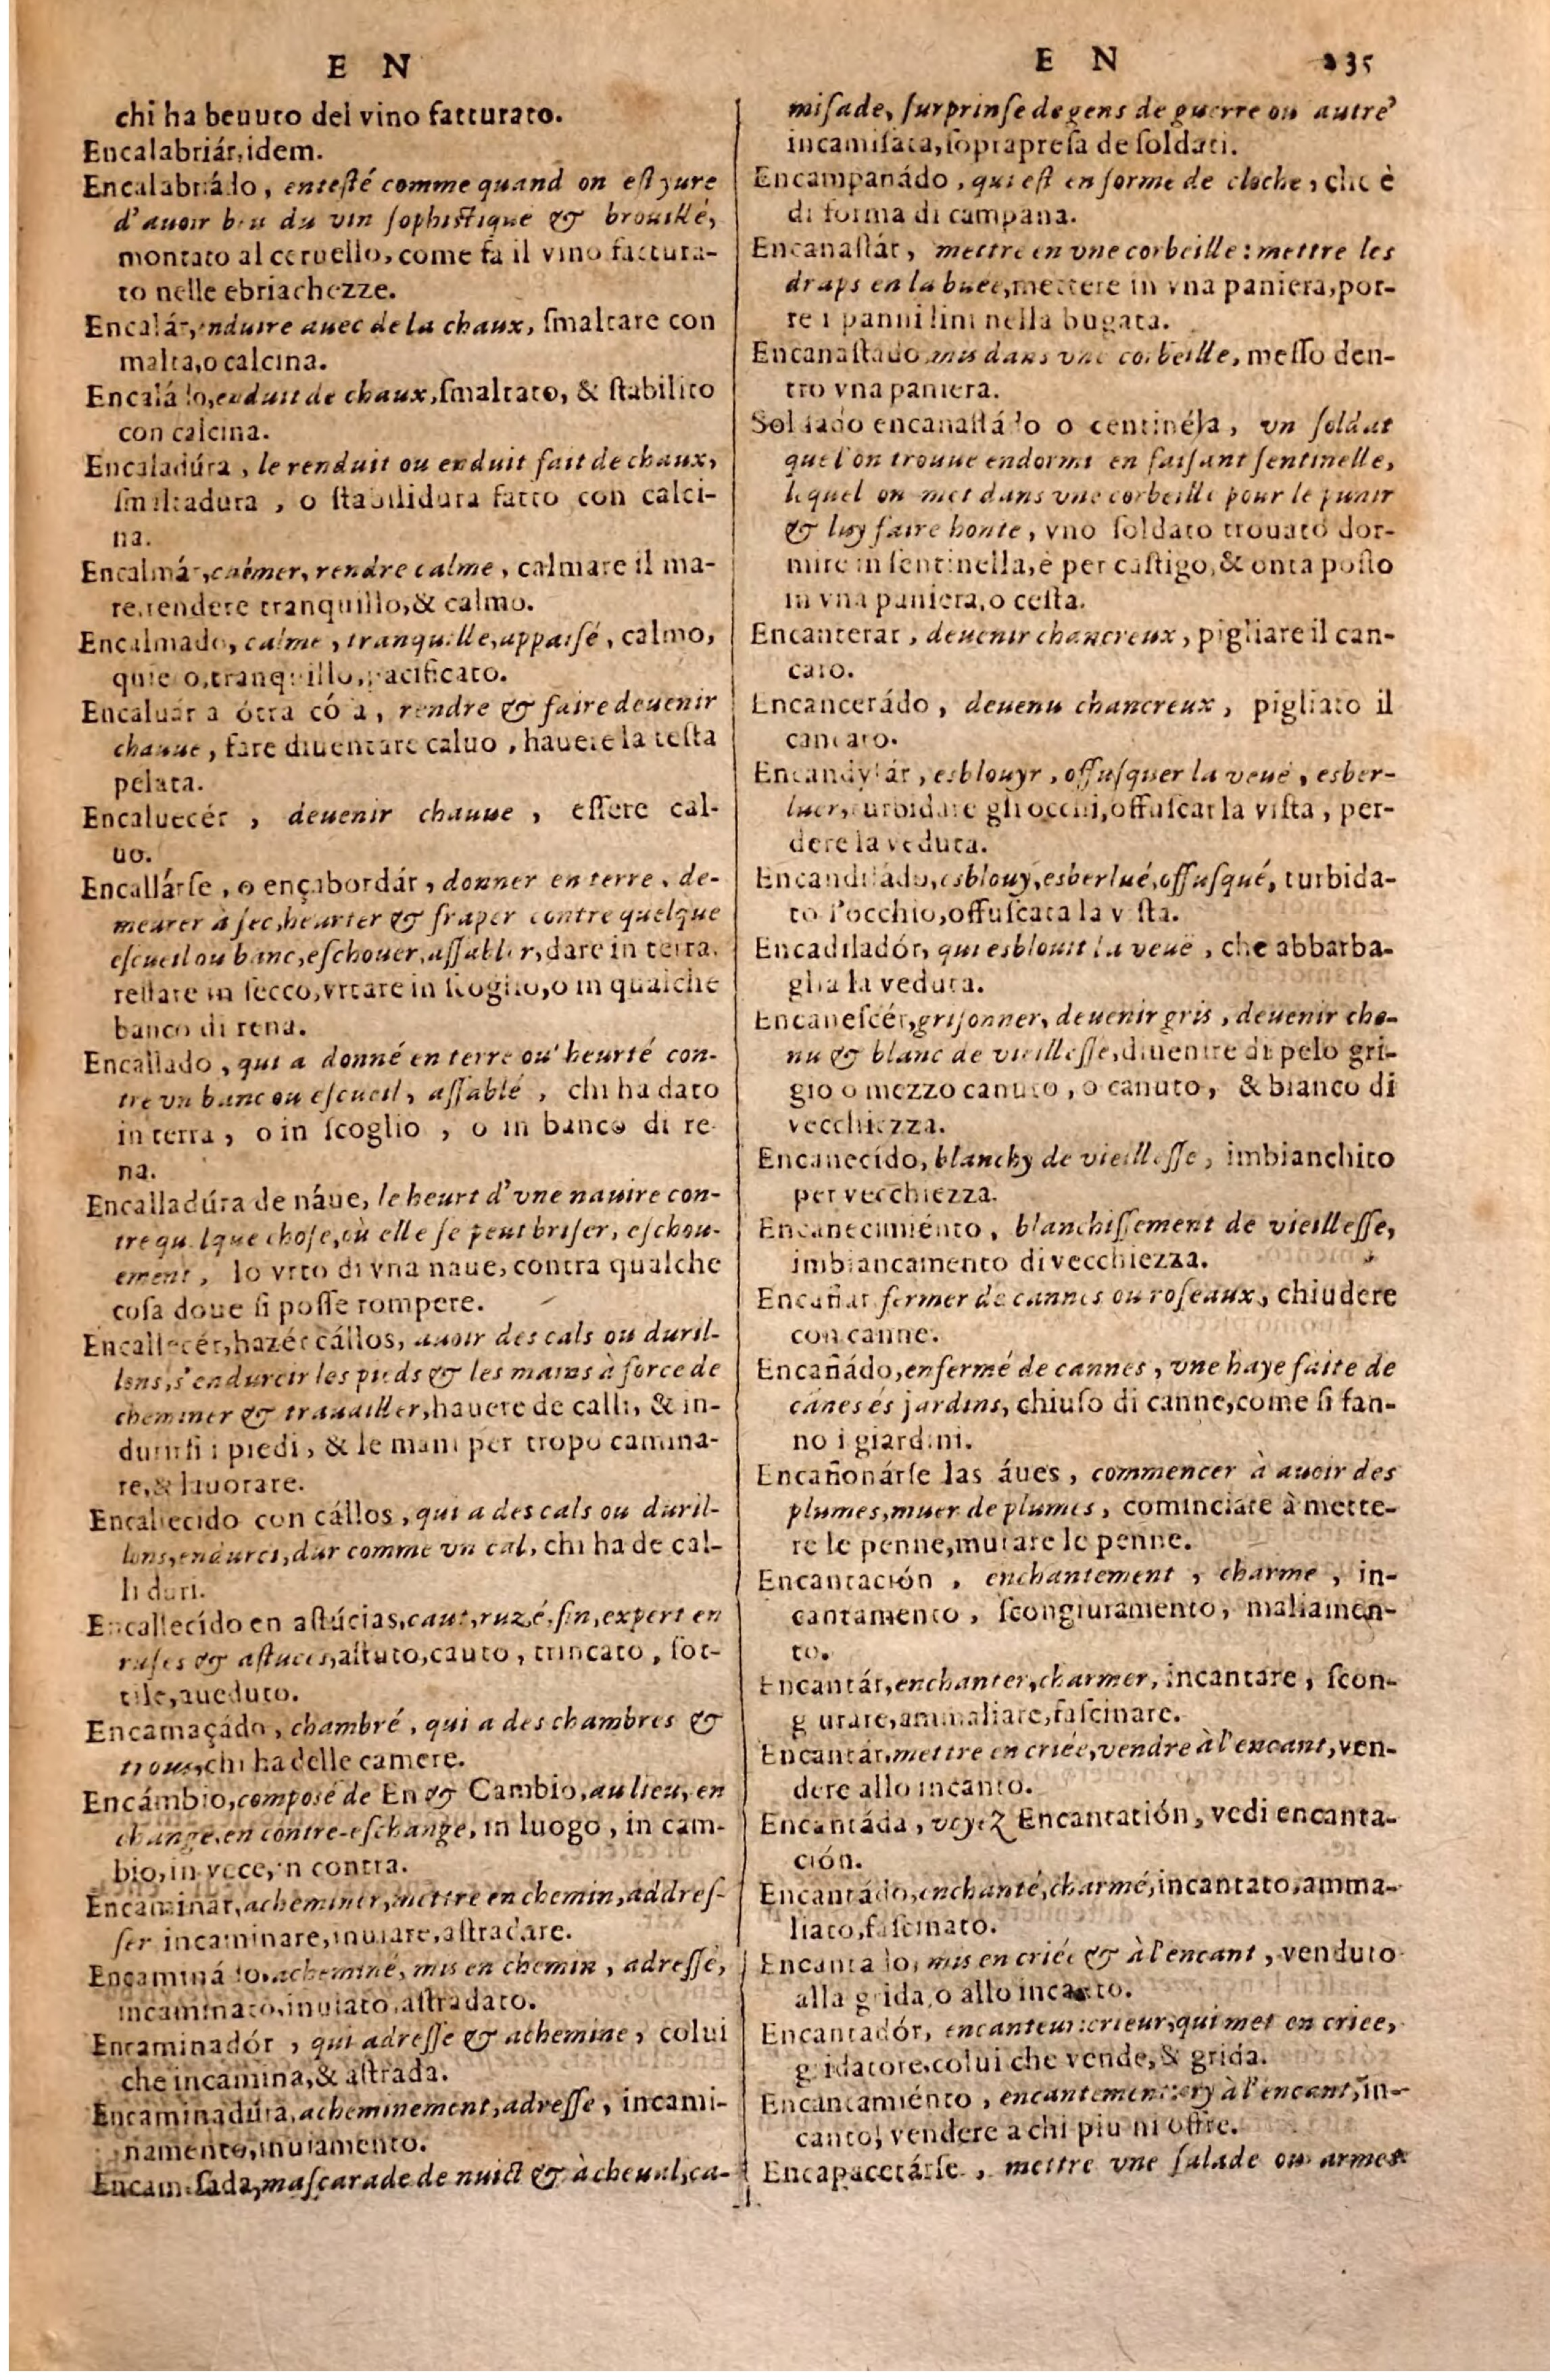 E N
chi ha beuuto del vino fatturato.
Encalabriár, idem.
Encalabriádo, entesté comme quand on est yure
d'auoir beu du vin sophistiqué & brouillé,
montato al ceruello, come fa il vino fattura-
to nelle ebriachezze.
Encalár, enduire auec de la chaux, smaltare con
malta, o calcina.
Encaládo, enduit de chaux, smaltato, & stabilito
con calcina.
Encaladúra, le renduit ou enduit fait de chaux,
smaltadura, o stabilidura fatto con calci-
na.
Encalmár, calmer, rendre calme, calmare il ma-
re, rendere tranquillo, & calmo.
Encalmado, calme, tranquille, appaisé, calmo,
quieto, tranquillo, pacificato.
Encaluár a ótra cósa, rendre & faire deuenir
chauue, fare diuentare caluo, hauere la testa
pelata.
Encaluecér, deuenir chauue, essere cal-
uo.
Encallárse, o ençabordár, donner en terre, de-
meurer à sec, heurter & fraper contre quelque
escueil ou banc, eschouer, assabler, dare in terra,
restare in secco, vrtare in scoglio, o in qualche
banco di rena.
Encallado, qui a donné en terre ou heurté con-
tre vn banc ou escueil, assablé, chi ha dato
in terra, o in scoglio, o in banco di re
na.
Encalladúra de náue, le heurt d'vne nauire con-
tre quelque chose, où elle se peut briser, eschou-
ement, lo vrto di vna naue, contra qualche
cosa doue si posse rompere.
Encallecér, hazér cállos, auoir des cals ou duril-
lons, s'endurcir les pieds & les mains à force de
cheminer & trauailler, hauere de calli, & in-
durirsi i piedi, & le mani per tropo camina-
re, & lauorare.
Encallecido con cállos, qui a des cals ou duril-
lons, endurci, dur comme vn cal, chi ha de cal-
li duri.
Encallecído en astúcias, caut, ruzé, fin, expert en
ruses & astuces, astuto, cauto, trincato, sot-
tile, aueduto.
Encamaçádo, chambré, qui a des chambres &
trous, chi ha delle camere.
Encámbio, composé de En & Cambio, au lieu, en
change, en contre-eschange, in luogo, in cam-
bio, in vece, in contra.
Encaminár, acheminer, mettre en chemin, addres-
ser incaminare, inuiare, astradare.
Encaminádo, acheminé, mis en chemin, adressé,
incaminato, inuiato, astradato.
Encaminadór, qui adresse & achemine, colui
che incamina, & astrada.
Encaminadúra, acheminement, adresse, incami-
namento, inuiamento.
Encamisada, mascarade de nuict & à cheual, ca-
E N 235
misade, surprinse de gens de guerre ou autre
incamisata, sopra presa de soldati.
Encampanádo, qui est en forme de cloche, che è
di forma di campana.
Encanastár, mettre en vne corbeille: mettre les
draps en la buee, mettere in vna paniera, por-
re i panni lini nella bugata.
Encanastado, mis dans vne corbeille, messo den-
tro vna paniera.
Soldado encanastádo o centinéla, vn soldat
que l'on trouue endormi en faisant sentinelle,
lequel on met dans vne corbeille pour le punir
& luy faire honte, vno soldato trouato dor-
mire in sentinella, è per castigo, & onta posto
in vna paniera, o cesta.
Encancerar, deuenir chancreux, pigliare il can-
caro.
Encancerádo, deuenu chancreux, pigliato il
cancaro.
Encandylár, esblouyr, offusquer la veuë, esber-
luer, turbidare gli occhi, offuscar la vista, per-
dere la veduta.
Encandiládo, esblouy, esberlué, offusqué, turbida-
to l'occhio, offuscata la vista.
Encadiladór, qui esblouit la veuë, che abbarba-
glia la veduta.
Encanescér, grisonner, deuenir gris, deuenir che-
nu & blanc de vieillesse, diuenire di pelo gri-
gio o mezzo canuto, o canuto, & bianco di
vecchiezza.
Encanecído, blanchy de vieillesse, imbianchito
per vecchiezza.
Encanecimiénto, blanchissement de vieillesse,
imbiancamento di vecchiezza.
Encañar fermer de cannes ou roseaux, chiudere
con canne.
Encañádo, enfermé de cannes, vne haye faite de
canes és jardins, chiuso di canne, come si fan-
no i giardini.
Encañonárse las áues, commencer à auoir des
plumes, muer de plumes, cominciare à mette-
re le penne, mutare le penne.
Encantación, enchantement, charme, in-
cantamento, scongiuramento, maliamen-
to.
Encantár, enchanter, charmer, incantare, scon-
giurare, ammaliare, fascinare.
Encantár, mettre en criée, vendre à l'encant, ven-
dere allo incanto.
Encantáda, voyez Encantatión, vedi encanta-
ción.
Encantádo, enchanté, charmé, incantato, amma-
liato, fascinato.
Encantado, mis en criée & à l'encant, venduto
alla grida, o allo incanto.
Encantadór, encanteur: crieur, qui met en criee,
gridatore, colui che vende, & grida.
Encantamiénto, encantement: cry à l'encant, in-
canto, vendere a chi piu ni offre.
Encapacetárse, mettre vne salade ou armet